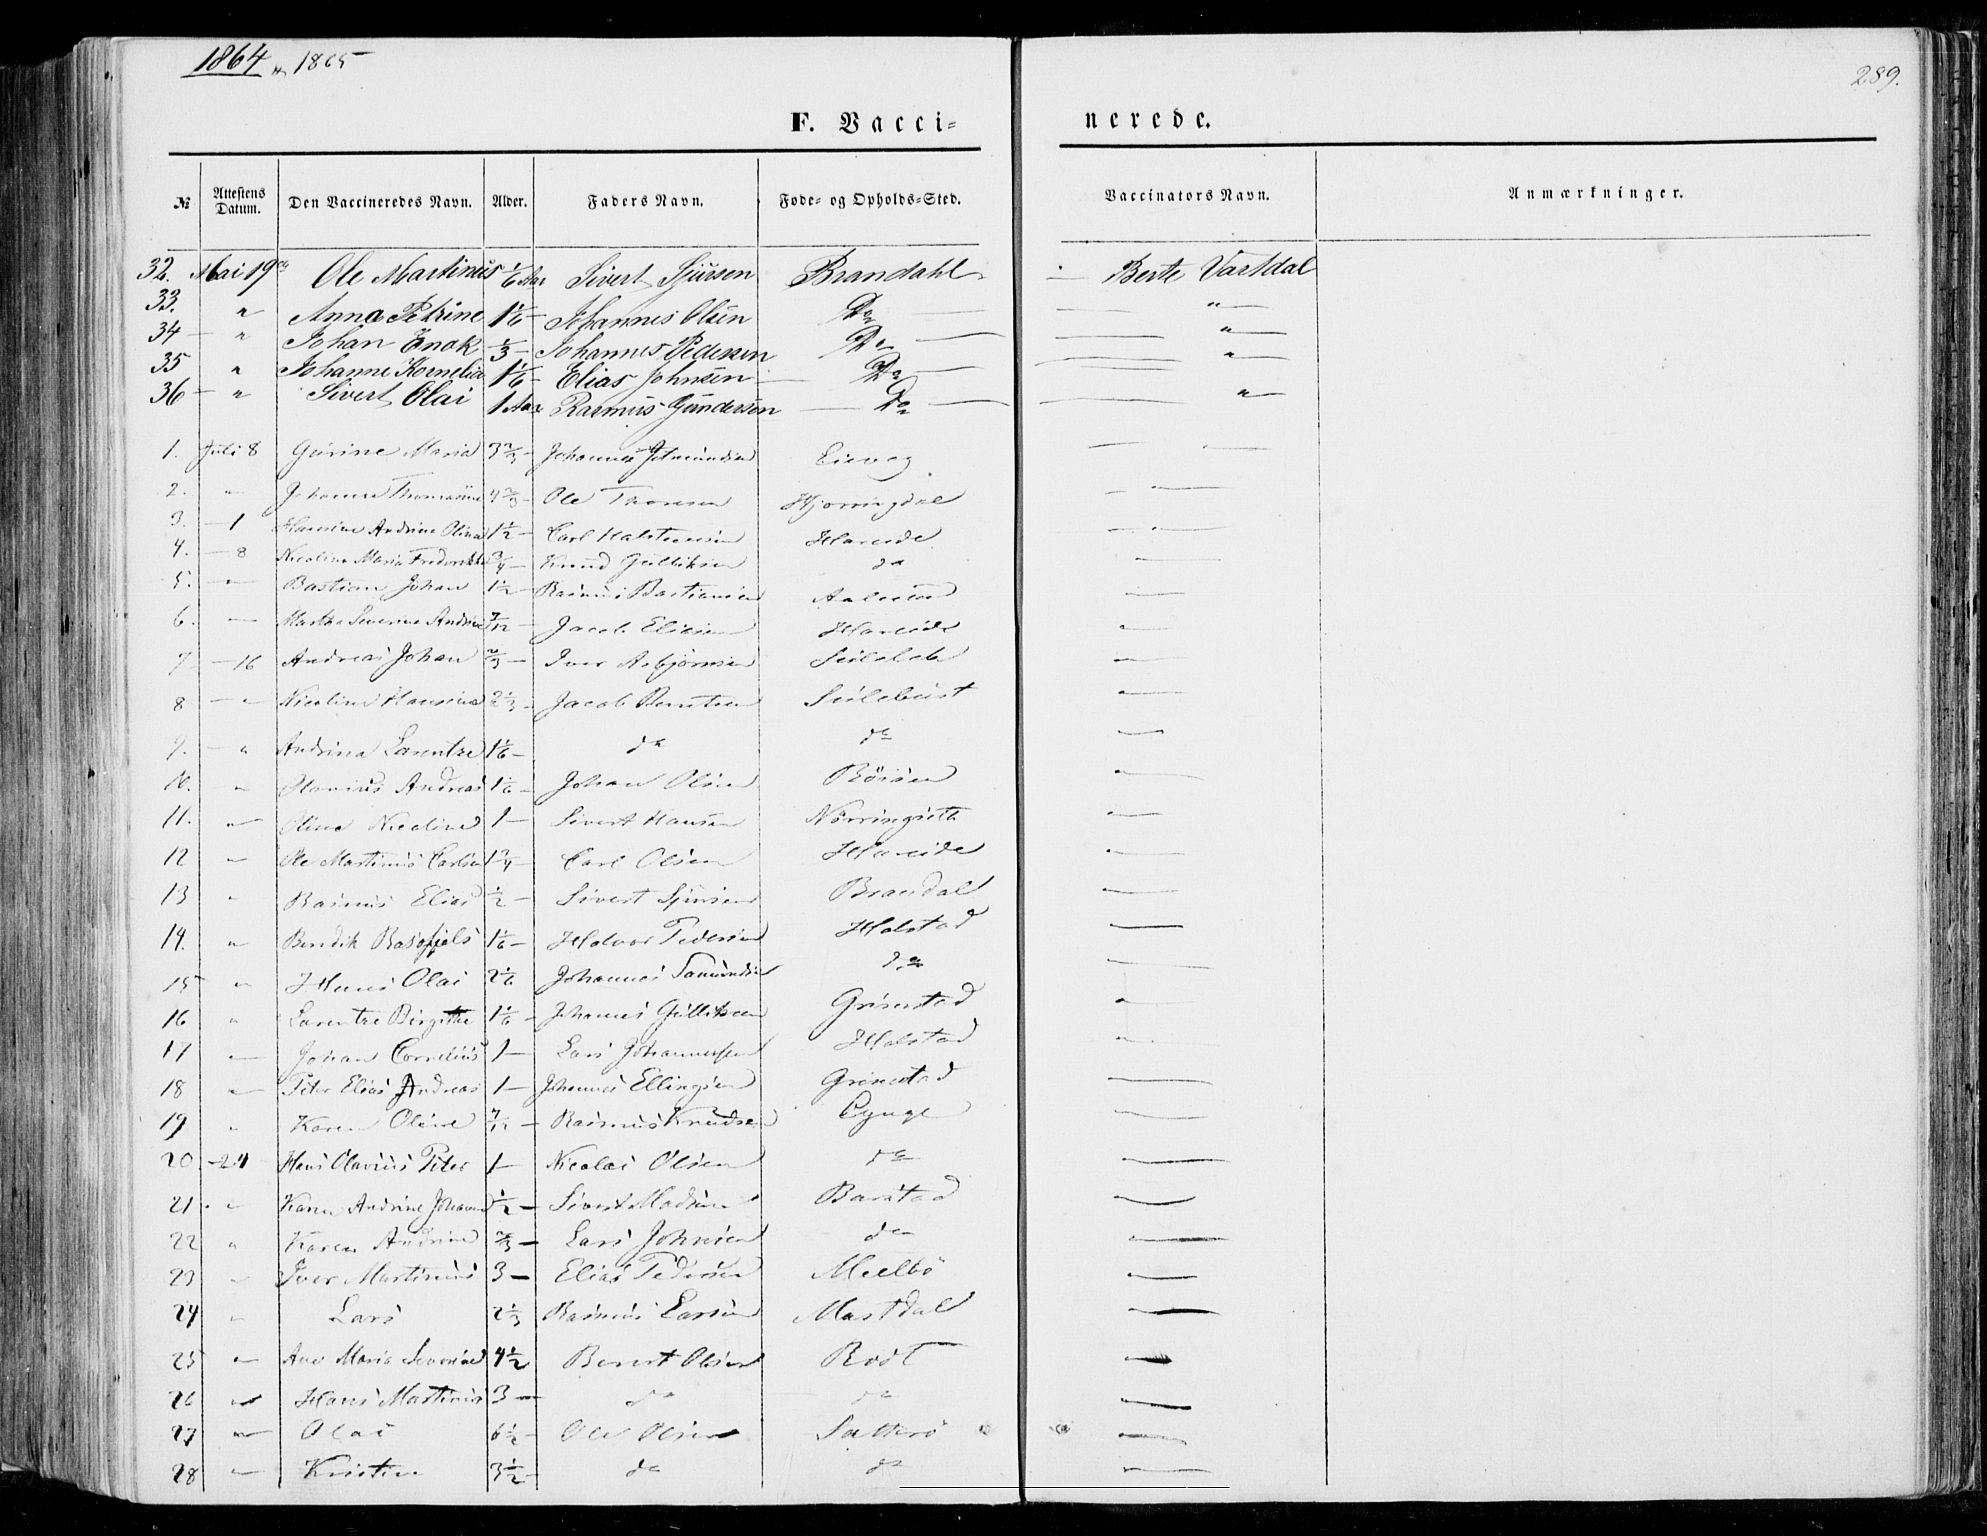 1864 1865
289.
F. Vacci- nerede.
№ Attestens Datum. Den Vaccineredes Navn. Alder. Faders Navn. Føde- og Opholds-Sted. Vaccinators Navn. Anmærkninger.
32. Mai 19 Ole Martinus 1/6 Aar Sivert Sjursen Brandahl — Berte Vartdal
33. " Anna Petrine 1 1/6 Johannes Olsen Do — "
34 — " Johan Enok 1/3 — Johannes Pedersen Do — "
35 " Johanne Kornelia 1 1/6 — Elias Johnsen — Do — "
36 — " Sivert Olai 1 Aar Rasmus Gundersen — Do — "
1. Juli 8 Gurine Maria 3 2/3 — Johannes —
2. " Johanne Thomasine 4 2/3 — Ole Thomsen Hjorringdal —
3. — 1 Hansine Andrine Olina 1 1/2 — Carl Halstensen Hareide —
4. — 8 Nicoline Maria Frederikke 3/4 — Knud Gulliksen do —
5. — Bastian Johan 1 1/2 — Rasmus Bastiansen Aalesund —
6. — Marthe Severine Andrine 7/12 — Jacob Eliasen Hareide —
7 — 16 Andreas Johan 2/3 — Iver Asbjørnsen —
8 — " Nicoline Hansine 2 1/3 — Jacob Berntsen —
9. — " Andrina Larentze 1 1/6 — do do —
10. " Olavius Andreas 1 1/6 — Johan Olsen Röisen —
11. " Oline Nicoline 1 — Sivert Hansen —
12 " Ole Martinus Carlsen 1 3/4 — Carl Olsen Hareide —
13 " Rasmus Elias 1/2 — Sivert Sjursen Brandal —
14. " Bendik 1 1/6 — Halvor Pedersen Holstad —
15 " Hans Olai 2 1/6 Johannes do —
16 " Larentze Birgitte 1 1/6 — Johannes Gulliksen Grimstad —
17 — Johan Cornelius 1 — Lars Johannessen Holstad —
18 " Peter Elias Andreas 1 — Johannes Ellingsen Grimstad —
19 " Karen Oline 7/12 — Rasmus Knudsen —
20. — 24 Hans Olavius Peter 1 — Nicolai Olsen do —
21. " Karen Andrine 1/2 — Sivert Madsen Barstad —
22 " Karen Andrine 2/3 — Lars Johnsen do —
23 " Iver Martinus 3 — Elias Pedersen Meelbö —
24 " Lars 2 1/3 Rasmus Larsen Mastdal —
25 " Ane Maria Severine 4 1/2 Bernt Olsen —
26 " Hans Martinus 3 — do do —
27 " Olai 6 1/2 — Ole Olsen —
28 — 3 1/2 — do do —